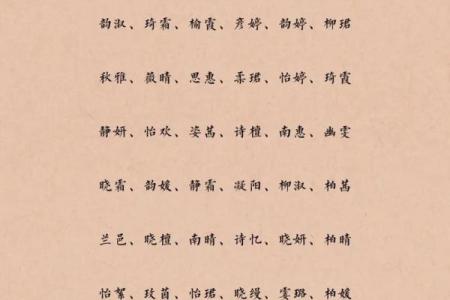 韵淑、琦霜、榆霞、彦婷、韵婷、柳珺
秋雅、薇晴、思惠、柔珺、怡婷、琦霞
静妍、怡欢、姿菡、诗檀、南惠、幽雯
晓霜、韵媛、静霜、凝阳、柳淑、柏菡
兰邑、晓檀、南晴、诗忆、晓妍、柏晴
怡絮、玫茵、怡珺、晓缦、雯璐、柏媛